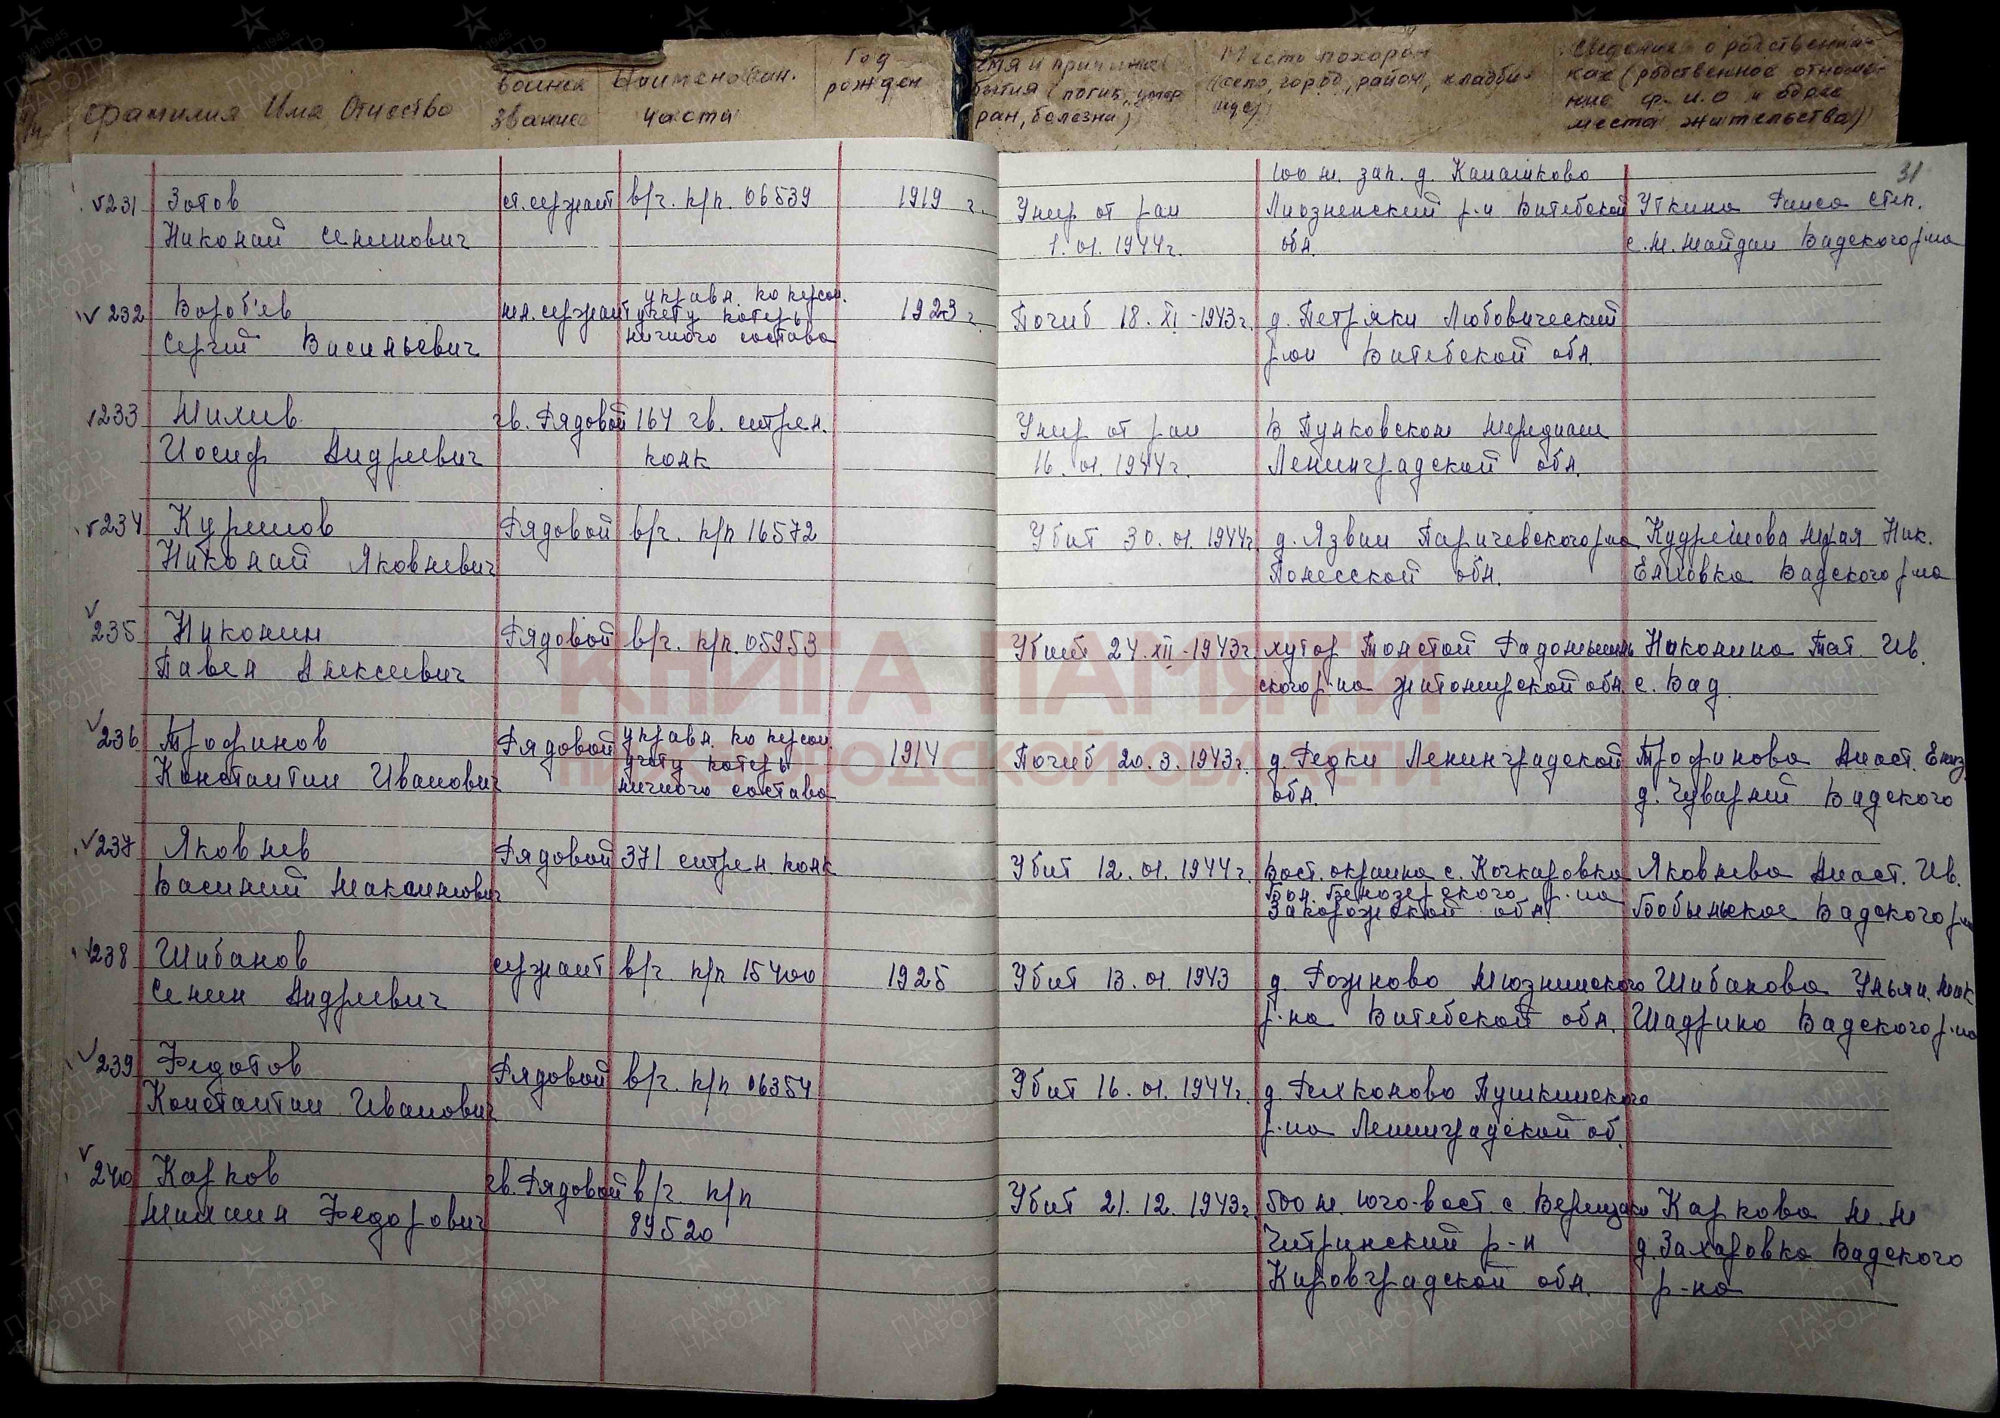 Фамилия Имя Отчество
воинск звание
Наименован. части
Год рожден
бытия (погиб, умер
ран, болезни)
Место похорон
(село, город, район, кладби-
ще)
сведения о родственни-
ках (родственное отноше-
ние ф.и.о и адрес
места жительства)
31
100 м. зап. д.
231 Зотов ст. сержант в/ч. п/п. 06539 1919 г. Умер от ран Лиозненский р-н Витебской Уткина Раиса Степ.
Николай Семенович 1.01.1944г. обл. с. М. Майдан Вадского р-на
управл. по персон.
232 Вороб'ев мл. сержант учету потерь 1923 г. Погиб 18.XI-1943г. д. Петряки Любовический
Сергей Васильевич личного состава р-он Витебской обл.
233 гв. Рядовой 164 гв. стрел. Умер от ран В Пулковском меридиан
Иосиф Андреевич полк 16.01.1944г. Ленинградской обл.
234 Рядовой в/ч. п/п 16572 Убит 30.01.1944г. д. Язвин Паричевского р-на Ник.
Николай Яковлевич Полесской обл. Елховка Вадского р-на
235 Никонин Рядовой в/ч. п/п. 05953 Убит 24.XII-1943г. хутор Толстой Никонина Тат. Ив.
Павел Алексеевич ского р-на Житомирской обл. с. Вад.
управл. по персон.
236 Трофимов Рядовой учету потерь 1914 Погиб 20.3.1943г. д. Редки Ленинградской Трофимова Анаст. Елиз.
Константин Иванович личного состава обл. д. Вадского
237 Яковлев Рядовой 371 стрел. полк Убит 12.01.1944г. Вост. окраина с. Яковлева Анаст. Ив.
Василий Максимович Бол. Белозерского р-на Бобыльское Вадского р-на
Запорожской обл.
238 Шибанов сержант в/ч п/п 15400 1925 Убит 13.01.1943 д. Рожново Лиозненского Шибанова Ульян. Мак
Семен Андреевич р-на Витебской обл. Шадрино Вадского р-на
239 Федотов Рядовой в/ч. п/п 06354 Убит 16.01.1944г. д. Пушкинского
Константин Иванович р-на Ленинградской об.
240 Карпов гв. Рядовой в/ч. п/п Убит 21.12.1943г. 500 м. юго-вост. с. Карпова М. М
Михаил Федорович 89520 р-н д. Захаровка Вадского
Кировградской обл. р-на
КНИГА ПАМЯТИ
НИЖЕГОРОДСКОЙ ОБЛАСТИ
ПАМЯТЬ
НАРОДА